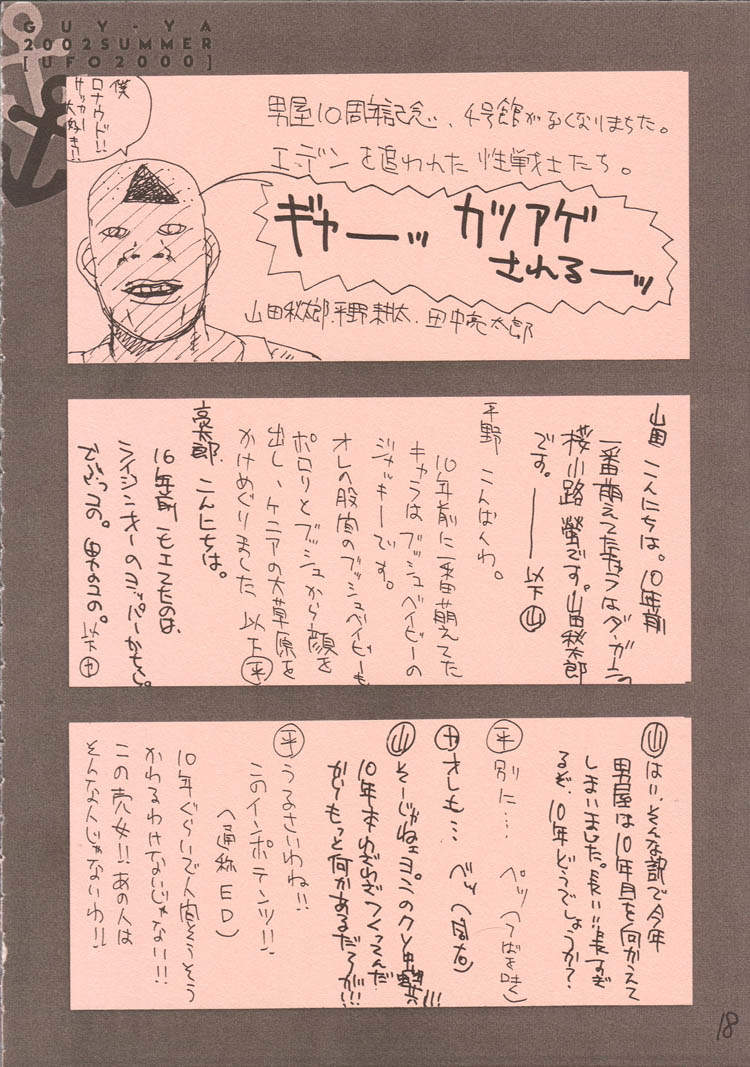 GUY-YA
2002SUMMER
[UFO2000]
僕
ロナウド!!
サッカー
大好き!!
男屋10周年記念、4号館がなくなりまちた。
エデンを追われた性戦士たち。
ギャーーッ カツアゲ
されるーーッ
山田秋太郎.平野耕太.田中亮太郎
山田 こんにちは。10年前
一番萌えてたキャラはダ・ガーン
桜小路螢です。山田秋太郎
です。――以下山
平野 こんばんわ。
10年前に一番萌えてた
キャラはブッシュベイビーの
ジャッキーです。
オレの股間のブッシュベイビーも
ポロリとブッシュから顔を
出し、ケニアの大草原を
かけめぐりました 以下平
亮太郎 こんにちは。
10年前モエてたのは、
ライジンオーの
男のコの。以下十
山 はい、そんな訳で今年
男屋は10年目を向かえて
しまいました。長い!!長すぎ
るぞ、10年どうでしょうか?
平 別に… ペッ(つばを吐く)
十 オレも… ペッ
山 そーじゃねェ
10年本わざわざつくってんだ
からもっと何かあるだろが!!!
平 うるさいわね!!
このインポテンツ!!
(通称ED)
10年ぐらいで人間そうそう
かわるわけないじゃない!!
この売女!!あの人は
そんな人じゃないわ!!
18